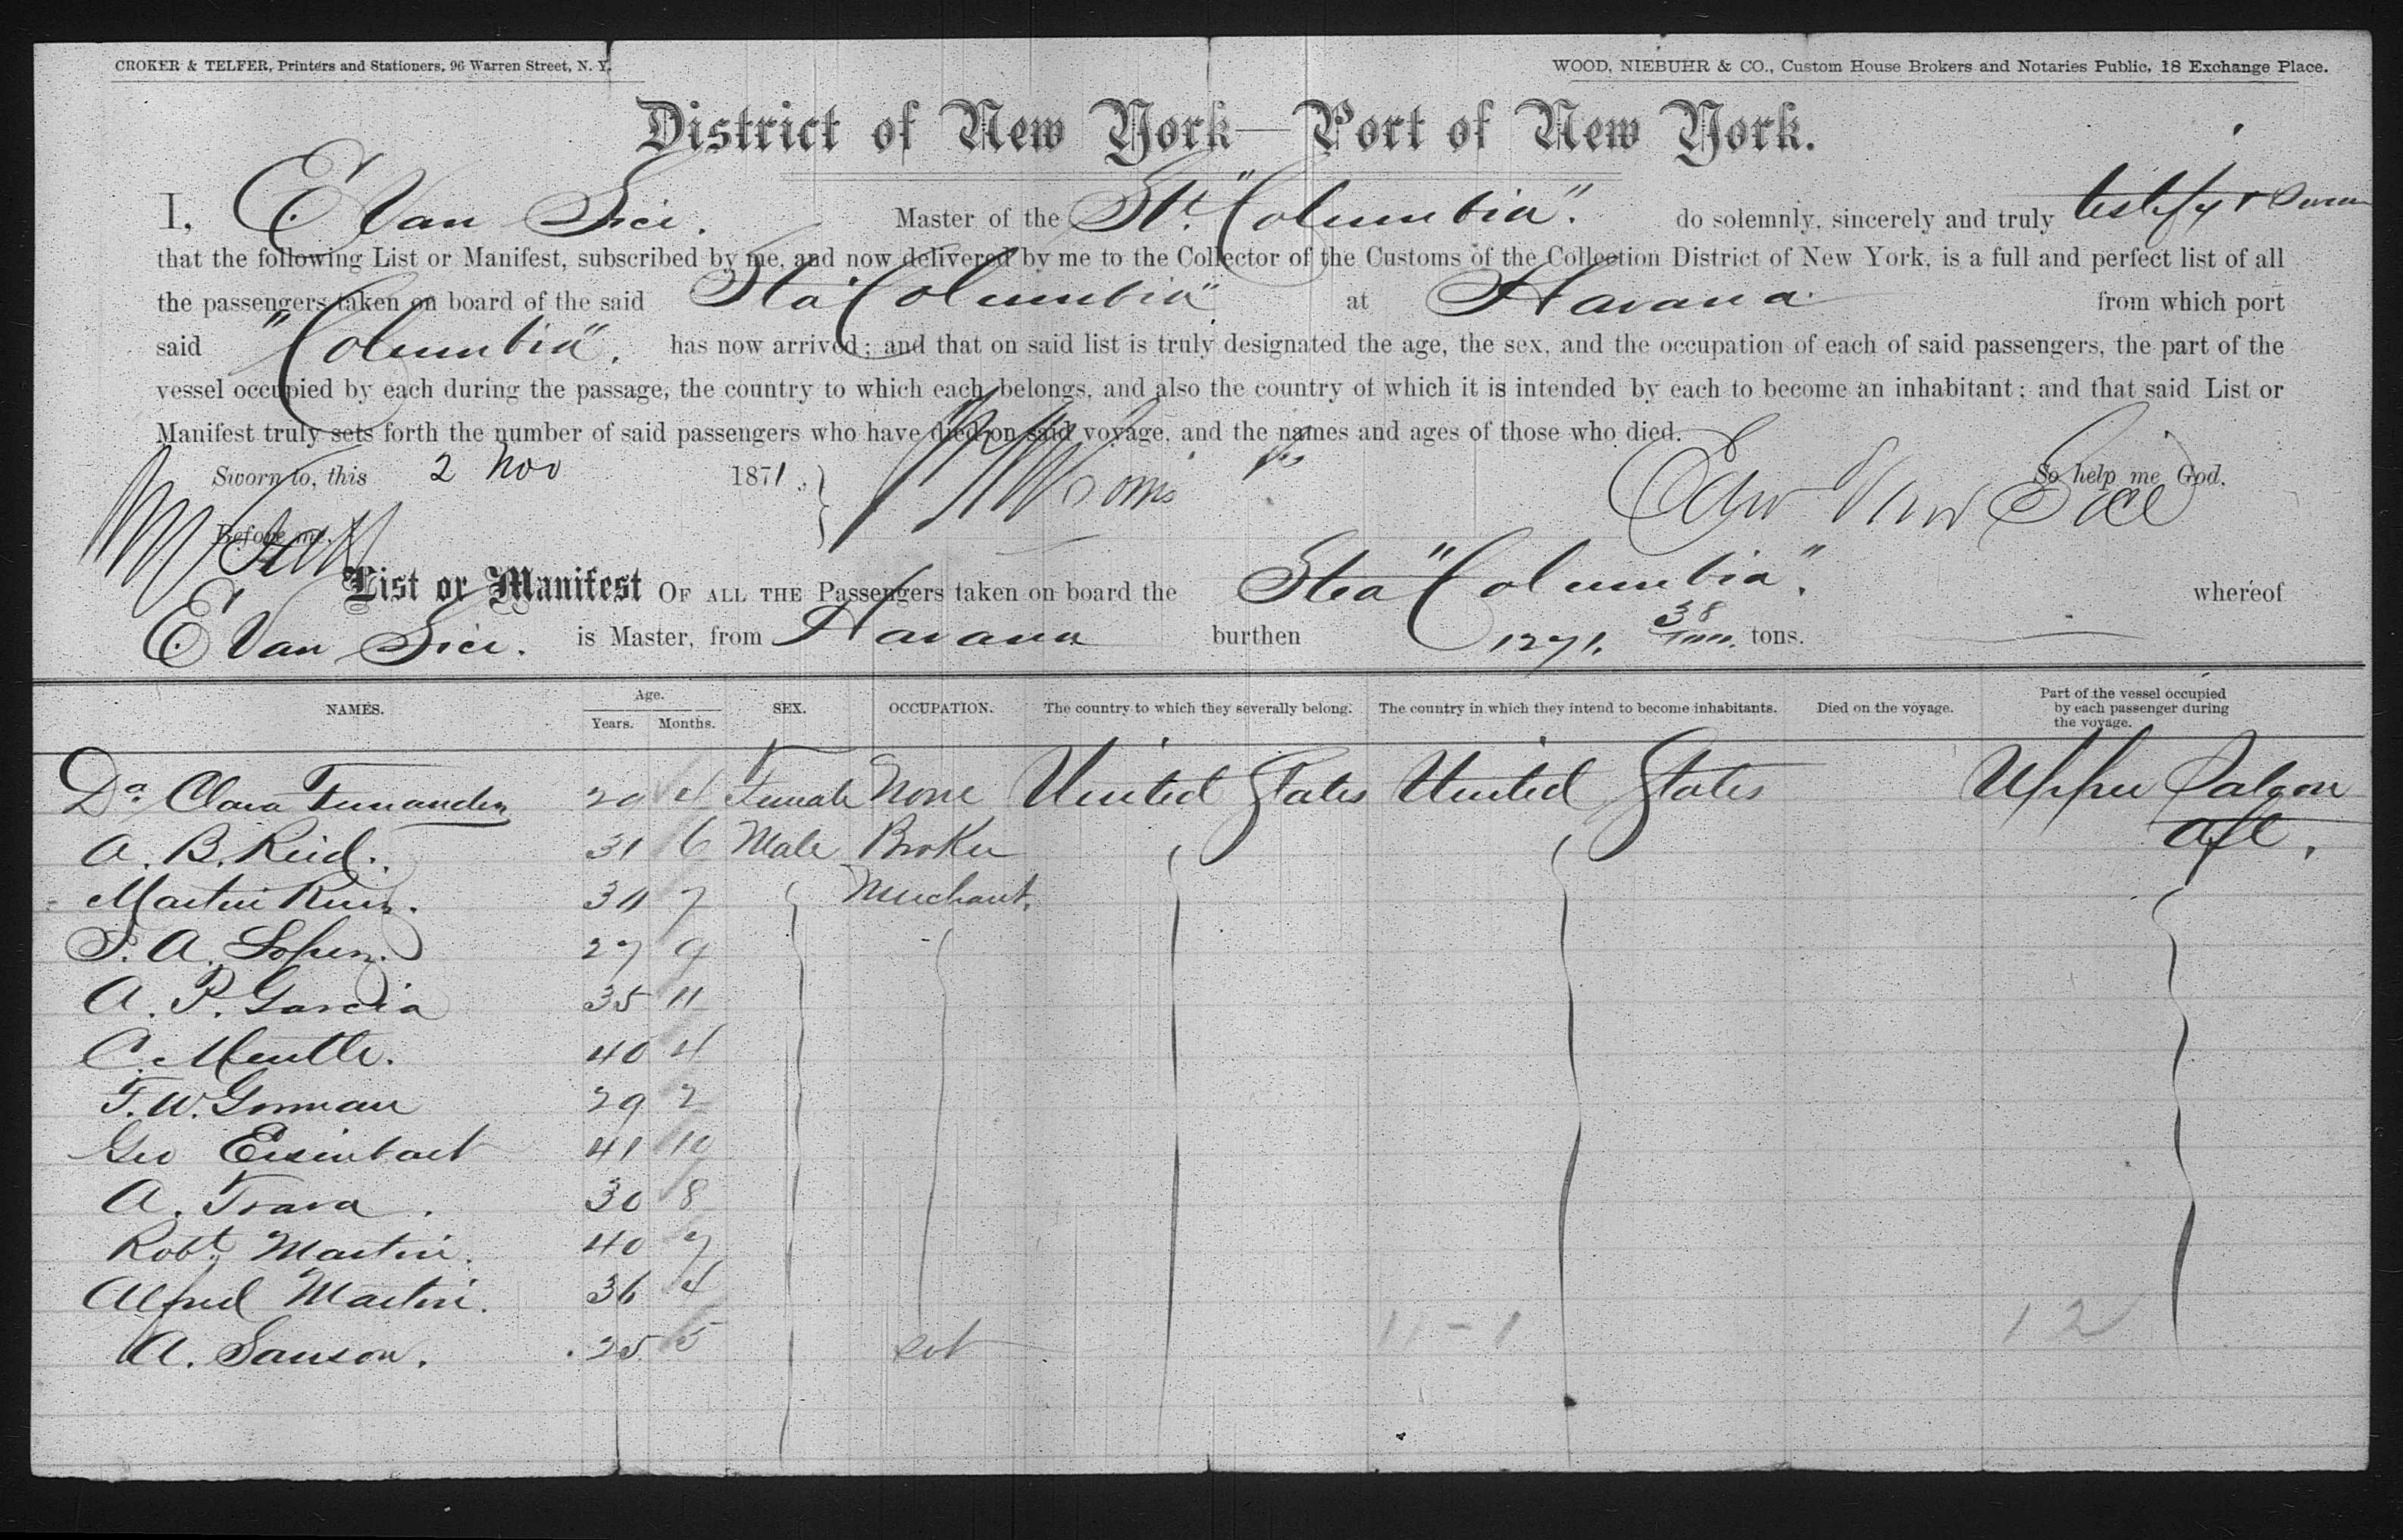 CROKER & TELFER, Printers and Stationers, 96 Warren Street, N. Y.
WOOD, NIEBUHR & CO., Custom House Brokers and Notaries Public, 18 Exchange Place.
District of New York—Port of New York.
I, E Van Sice. Master of the Str. "Columbia". do solemnly, sincerely and truly testify & swear
that the following List or Manifest, subscribed by me, and now delivered by me to the Collector of the Customs of the Collection District of New York, is a full and perfect list of all
the passengers taken on board of the said "Columbia" at Havana from which port
said "Columbia". has now arrived; and that on said list is truly designated the age, the sex, and the occupation of each of said passengers, the part of the
vessel occupied by each during the passage, the country to which each belongs, and also the country of which it is intended by each to become an inhabitant; and that said List or
Manifest truly sets forth the number of said passengers who have died on said voyage, and the names and ages of those who died.
Sworn to, this 2 Nov 1871. So help me God.
Edw Van Sice
Before me.
List or Manifest OF ALL THE Passengers taken on board the "Columbia". whereof
E Van Sice. is Master, from Havana burthen 1271. 38 tons.
NAMES. Age. Years. Months. SEX. OCCUPATION. The country to which they severally belong. The country in which they intend to become inhabitants. Died on the voyage. Part of the vessel occupied by each passenger during the voyage.
Da. Clara Fernandez 20 4 Female None United States United States Upper Saloon
A. B. Reid. 31 6 Male Broker aft.
Martin Ruiz. 7 Merchant.
A. Lopez. 27 9
A. P. Garcia 35 11
C. 40 4
F. W. Gorman 29 2
Geo 41 10
A. 30 8
Robt. Martin. 40 7
Alfred Martin. 36 4
A. Sanson. 25 5
11 - 1 12